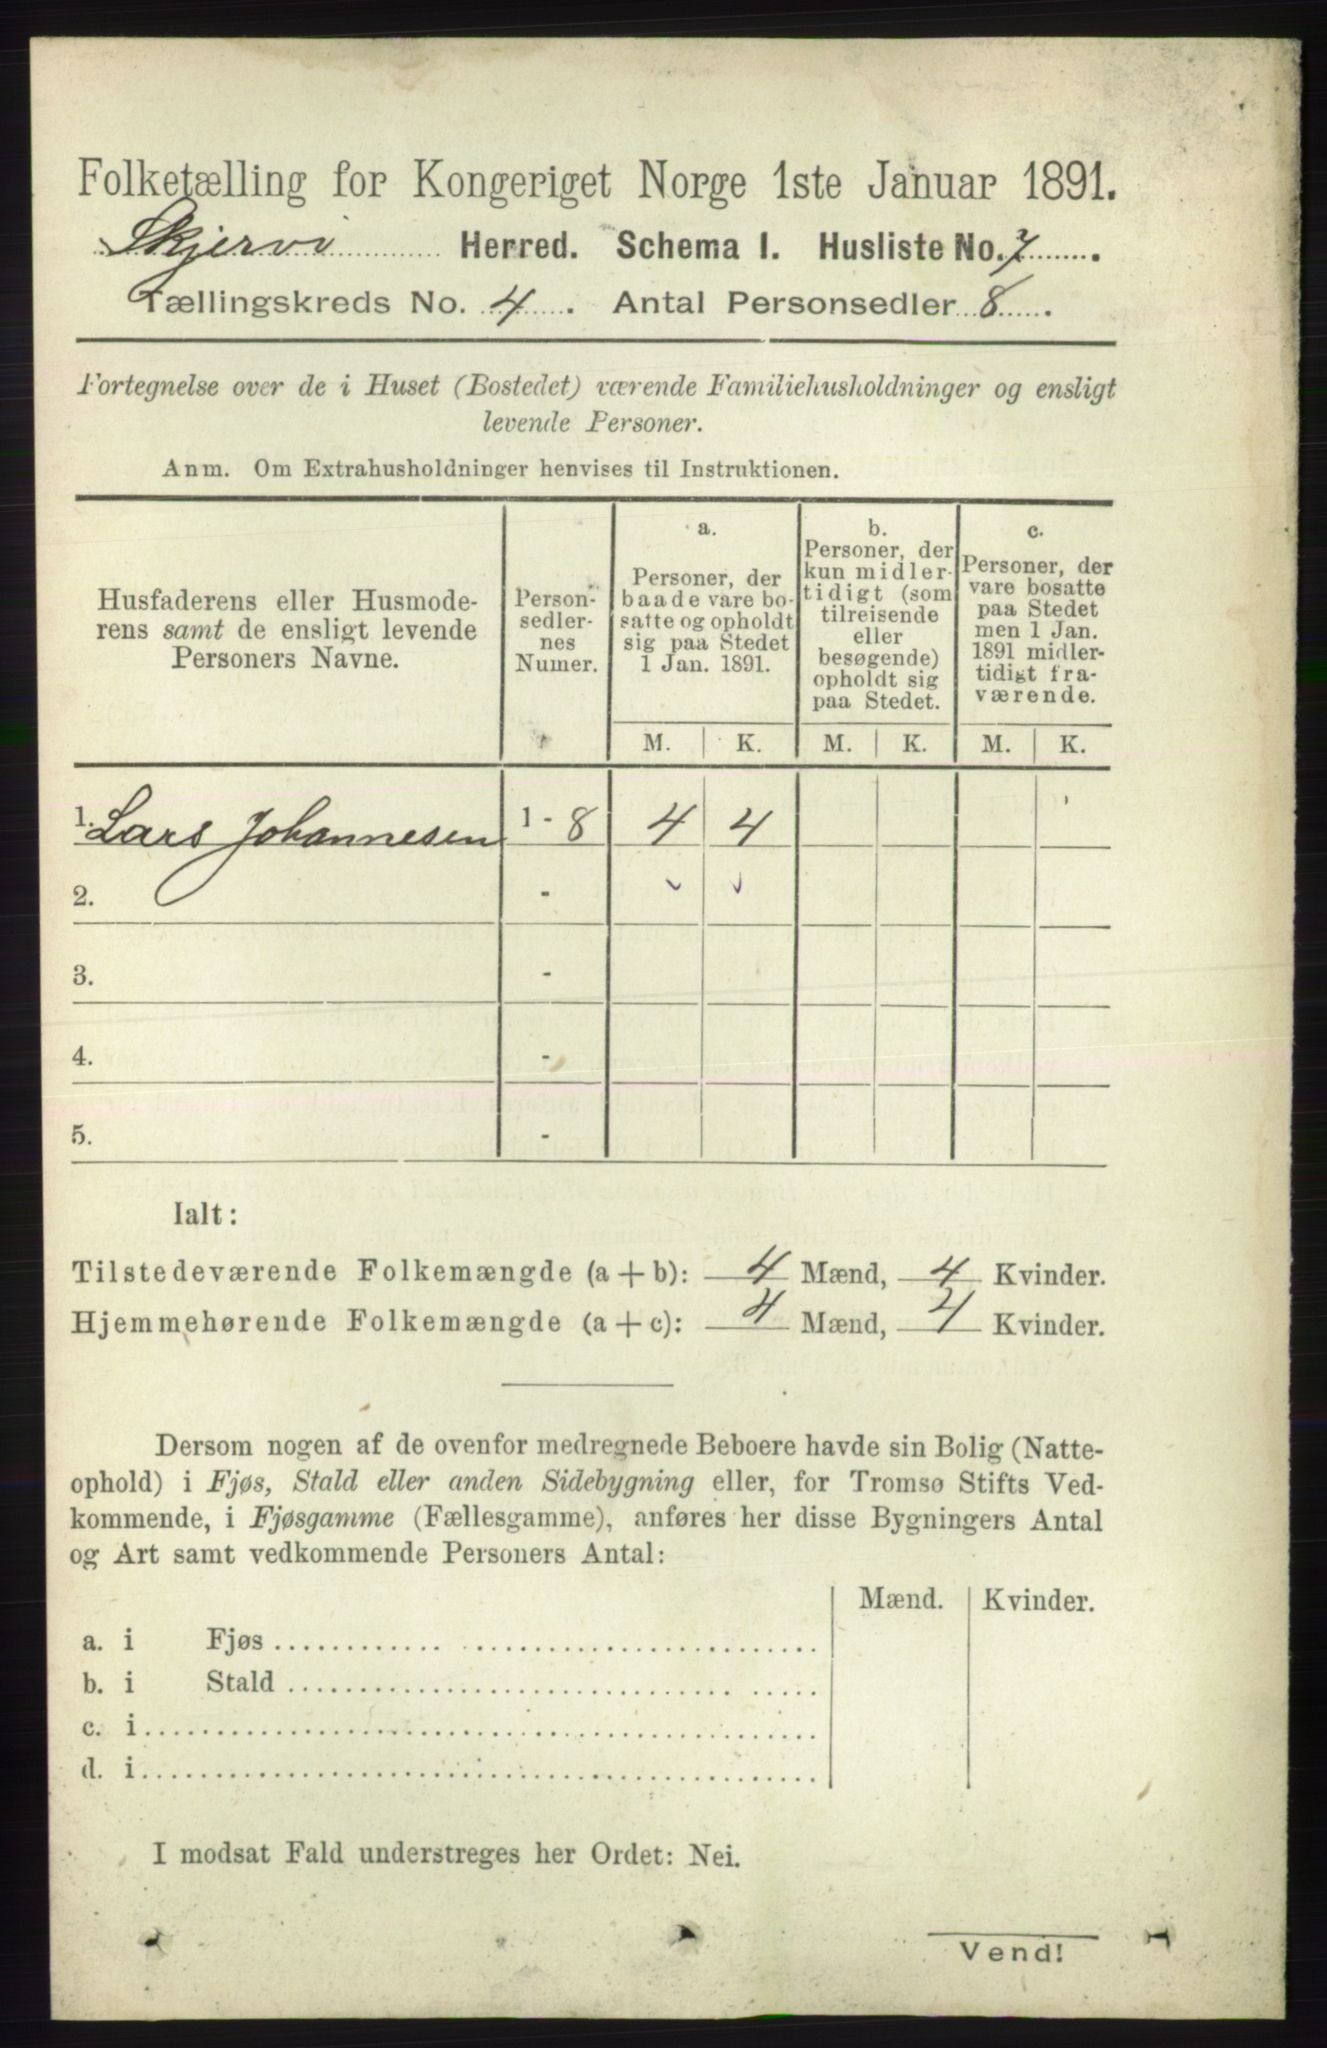 Folketælling for Kongeriget Norge 1ste Januar 1891.
Skjervö Herred. Schema I. Husliste No. 7
Tællingskreds No. 4. Antal Personsedler 8.
Fortegnelse over de i Huset (Bostedet) værende Familiehusholdninger og ensligt
levende Personer.
Anm. Om Extrahusholdninger henvises til Instruktionen.
Husfaderens eller Husmode-
rens samt de ensligt levende
Personers Navne.
Person-
sedler-
nes
Numer.
a.
Personer, der
baade vare bo-
satte og opholdt
sig paa Stedet
1 Jan. 1891.
b.
Personer, der
kun midler-
tidigt (som
tilreisende
eller
besøgende)
opholdt sig
paa Stedet.
c.
Personer, der
vare bosatte
paa Stedet
men 1 Jan.
1891 midler-
tidigt fra-
værende.
M. K. M. K. M. K.
1. Lars Johannesen 1 - 8 4 4
2. -
3. -
4. -
5. -
Ialt:
Tilstedeværende Folkemængde (a + b): 4 Mænd, 4 Kvinder.
Hjemmehørende Folkemængde (a + c): 4 Mænd, 4 Kvinder.
Dersom nogen af de ovenfor medregnede Beboere havde sin Bolig (Natte-
ophold) i Fjøs, Stald eller anden Sidebygning eller, for Tromsø Stifts Ved-
kommende, i Fjøsgamme (Fællesgamme), anføres her disse Bygningers Antal
og Art samt vedkommende Personers Antal:
Mænd. Kvinder.
a. i Fjøs
b. i Stald
c. i
d. i
I modsat Fald understreges her Ordet: Nei.
Vend!